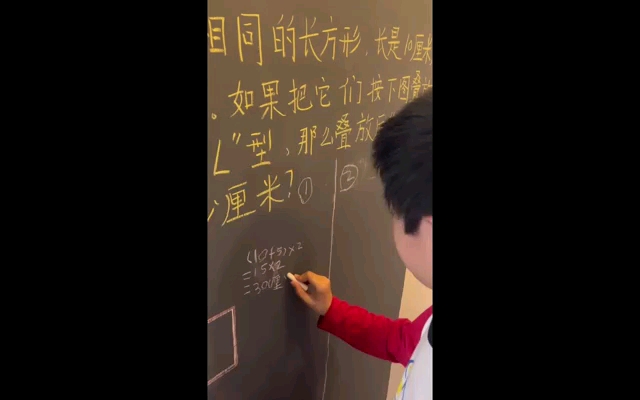 相同的长方形,长是10厘米
。如果把它们按下图叠放
L”型,那么叠放
厘米? ① ②
(10+5)×2
=15×2
=30(厘